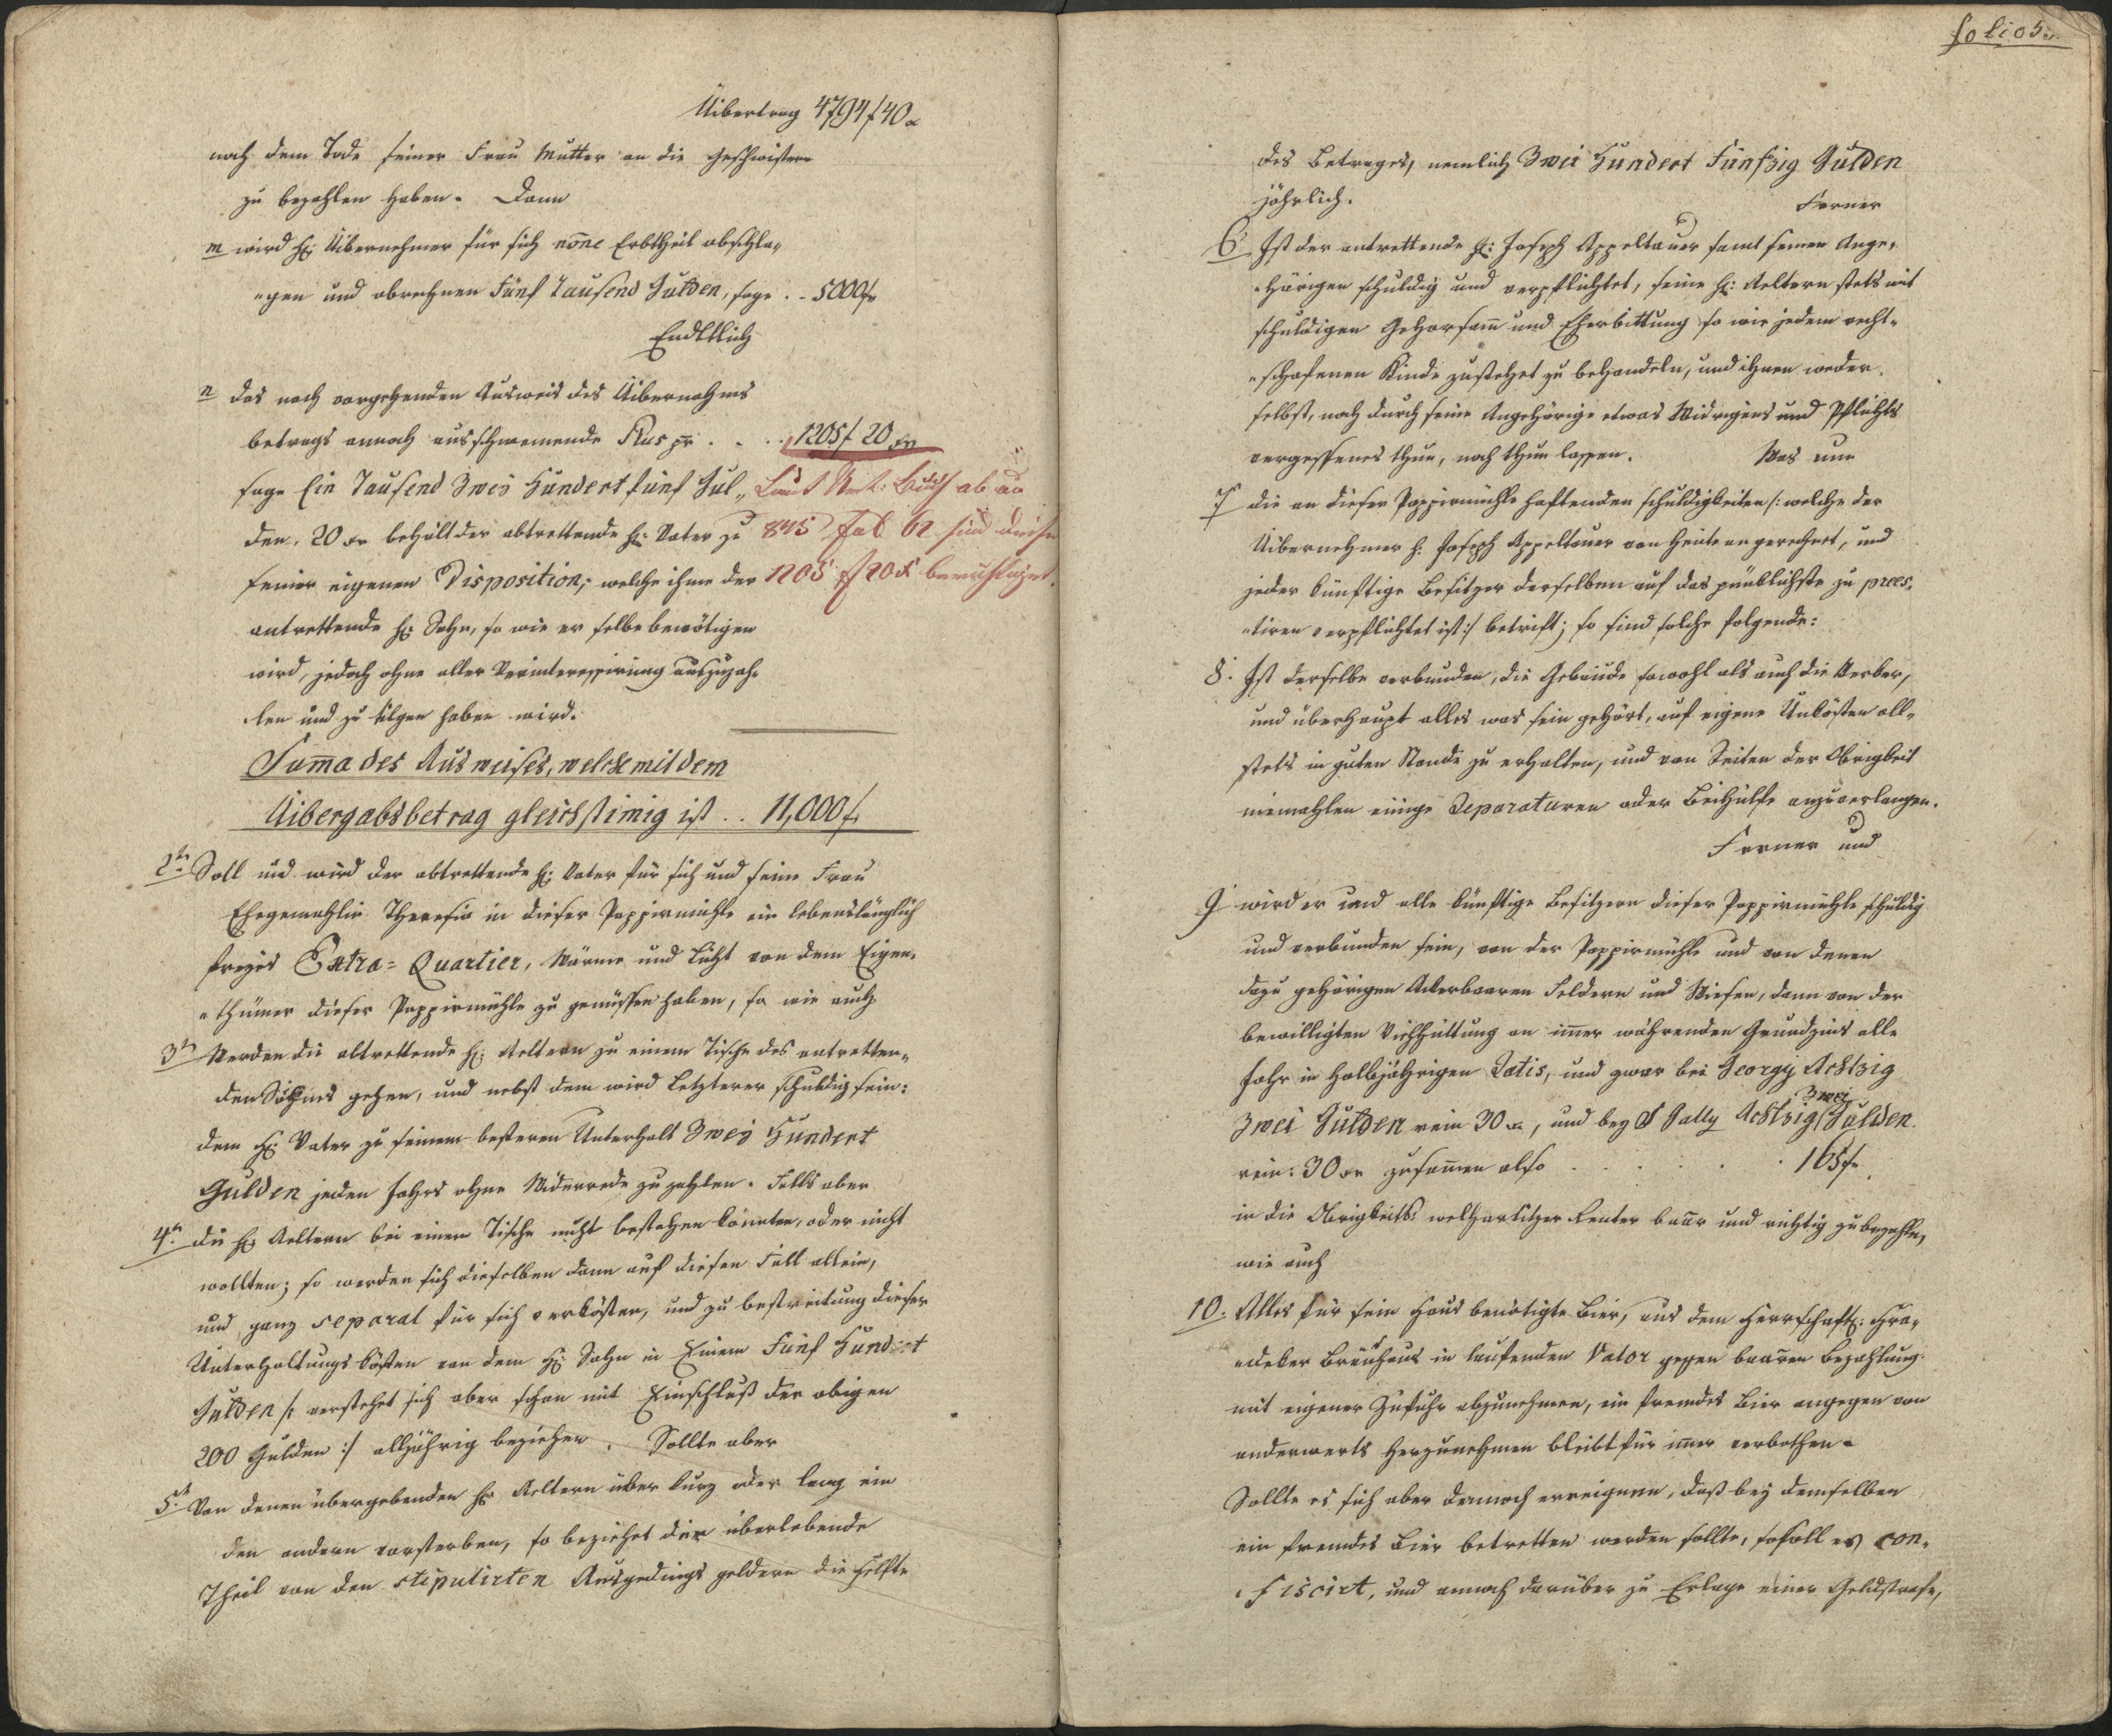 Uibertrag 4794f 40 x
nach dem Tode seiner Frau Mutter an die Geschwistern
zu bezahlen haben. Dann
m wird H: Uibernehmer für sich Erbtheil abschla„
„gen und abrechnen Fünf Tausend Gulden, sage . . 5000 f
Endtlich
n das nach vorgehenden Ausweis des Uibernahms
betrags annoch ausschwemmende Plus pr . . . 1205 f 20 xr
sage Ein Tausend Zwei Hundert fünf Gul„
den, 20 xr behält der abtrettende H: Vater zu
seiner eigenen Disposition, welche ihme der
antrettende H: Sohn, so wie er selbe benötigen
wird, jedoch ohne aller Verinteressirung auszuzah„
len und zu tilgen haben wird.
Laut Urk: Buch ab ao
845 Fol 62 sind diese
1205 f 20 x berichtiget.
Suma des Ausweises, welche mit dem
Uibergabsbetrag gleichstimig ist . . 11,000 f.
2tn Soll und wird der abtrettende H: Vater für sich und seine Frau
Ehegemahlin Theresia in dieser Pappirmühle ein lebenslänglich
freyes Extra = Quartier, Wärme und Licht von dem Eigen„
„thümer dieser Pappirmühle zu genüssen haben, so wie auch
3tn Werden die abtrettende H: Aeltern zu einem Tische des antretten„
den Sohnes gehen, und nebst dem wird Letzterer schuldig sein:
dem H: Vater zu seinem besseren Unterhalt Zwey Hundert
Gulden jeden Jahrs ohne Widerrede zu zahlen. Falls aber
4tn die H: Aeltern bei einem Tische nicht bestehen könnten, oder nicht
wollten; so werden sich dieselben dann auf diesen Fall allein,
und ganz separat für sich verkösten, und zu bestreitung dieser
Unterhaltungskösten von dem H: Sohn in Einem Fünf Hundert
Gulden /: verstehet sich aber schon mit Einschluß der obigen
200 Gulden :/ alljährig beziehen. Sollte aber
5t. Von denen übergebenden H: Aeltern über kurz oder lang ein
den andern vorsterben, so beziehet der überlebende
Theil von den stipulirten Ausgedings geldern die Helfte
folio 5
des Betrages, nemlich Zwei Hundert Fünfzig Gulden
jährlich. Ferner
6 Ist der antrettende H: Joseph Appeltauer samt seinen Ange„
„hörigen schuldig und verpflichtet, seine H: Aeltern stets mit
schuldigen Gehorsam und Eherbittung so wie jedem recht„
„schafenen Kinde zustehet zu behandeln, und ihnen weder
selbst, noch durch seine Angehörige etwas Widriges und Pflichts
vergessenes thun, noch thun lassen. Was nun
7 die an dieser Pappirmühle haftenden schuldigkeiten /: welche der
Uibernehmer H. Joseph Appeltauer von heute an gerechnet, und
jeder künftige Besitzer derselben auf das pünktlichste zu prees„
„tiren verpflichtet ist :/ betrift; so sind solche folgende:
8. Ist derselbe verbunden, die Gebäude sowohl als auch die Werker,
und überhaupt alles was sein gehört, auf eigene Unkösten all„
stets in guten Stande zu erhalten, und von Seiten der Obrigkeit
niemahlen einige Reparaturen oder Beihülfe anzuverlangen.
Ferner und
9 wird er und alle künftige Besitzern dieser Pappirmühle schuldig
und verbunden sein, von der Pappirmühle und von denen
dazu gehörigen Ackerbaaren Feldern und Wiesen, dann von der
bewilligten Viehhuttung an imer währenden Grundzins alle
Jahr in halbjährigen Ratis, und zwar bei Georgy Achtzig
Zwei Gulden rein 30 x, und bey S Gally Achtzig Zwei Gulden
rein: 30 xr zusamen also . . . . . . 165 f
in die Obrigkeitl. Renten baar und richtig zu bezahlen,
wie auch
10. Alles für sein Haus benötigte Bier, aus dem Herrschaftl:
Bräuhaus in laufenden Valor gegen baaren Bezahlung
mit eigener Zufuhr abzunehmen, ein fremdes Bier angegen von
anderwerts herzunehmen bleibt für imer verbothen.
Sollte es sich aber dennoch erreignen, daß bey demselben
ein fremdes Bier betretten werden sollte, so soll es con„
„fiscirt, und annoch darüber zu Erlage einer Geldstrafe,